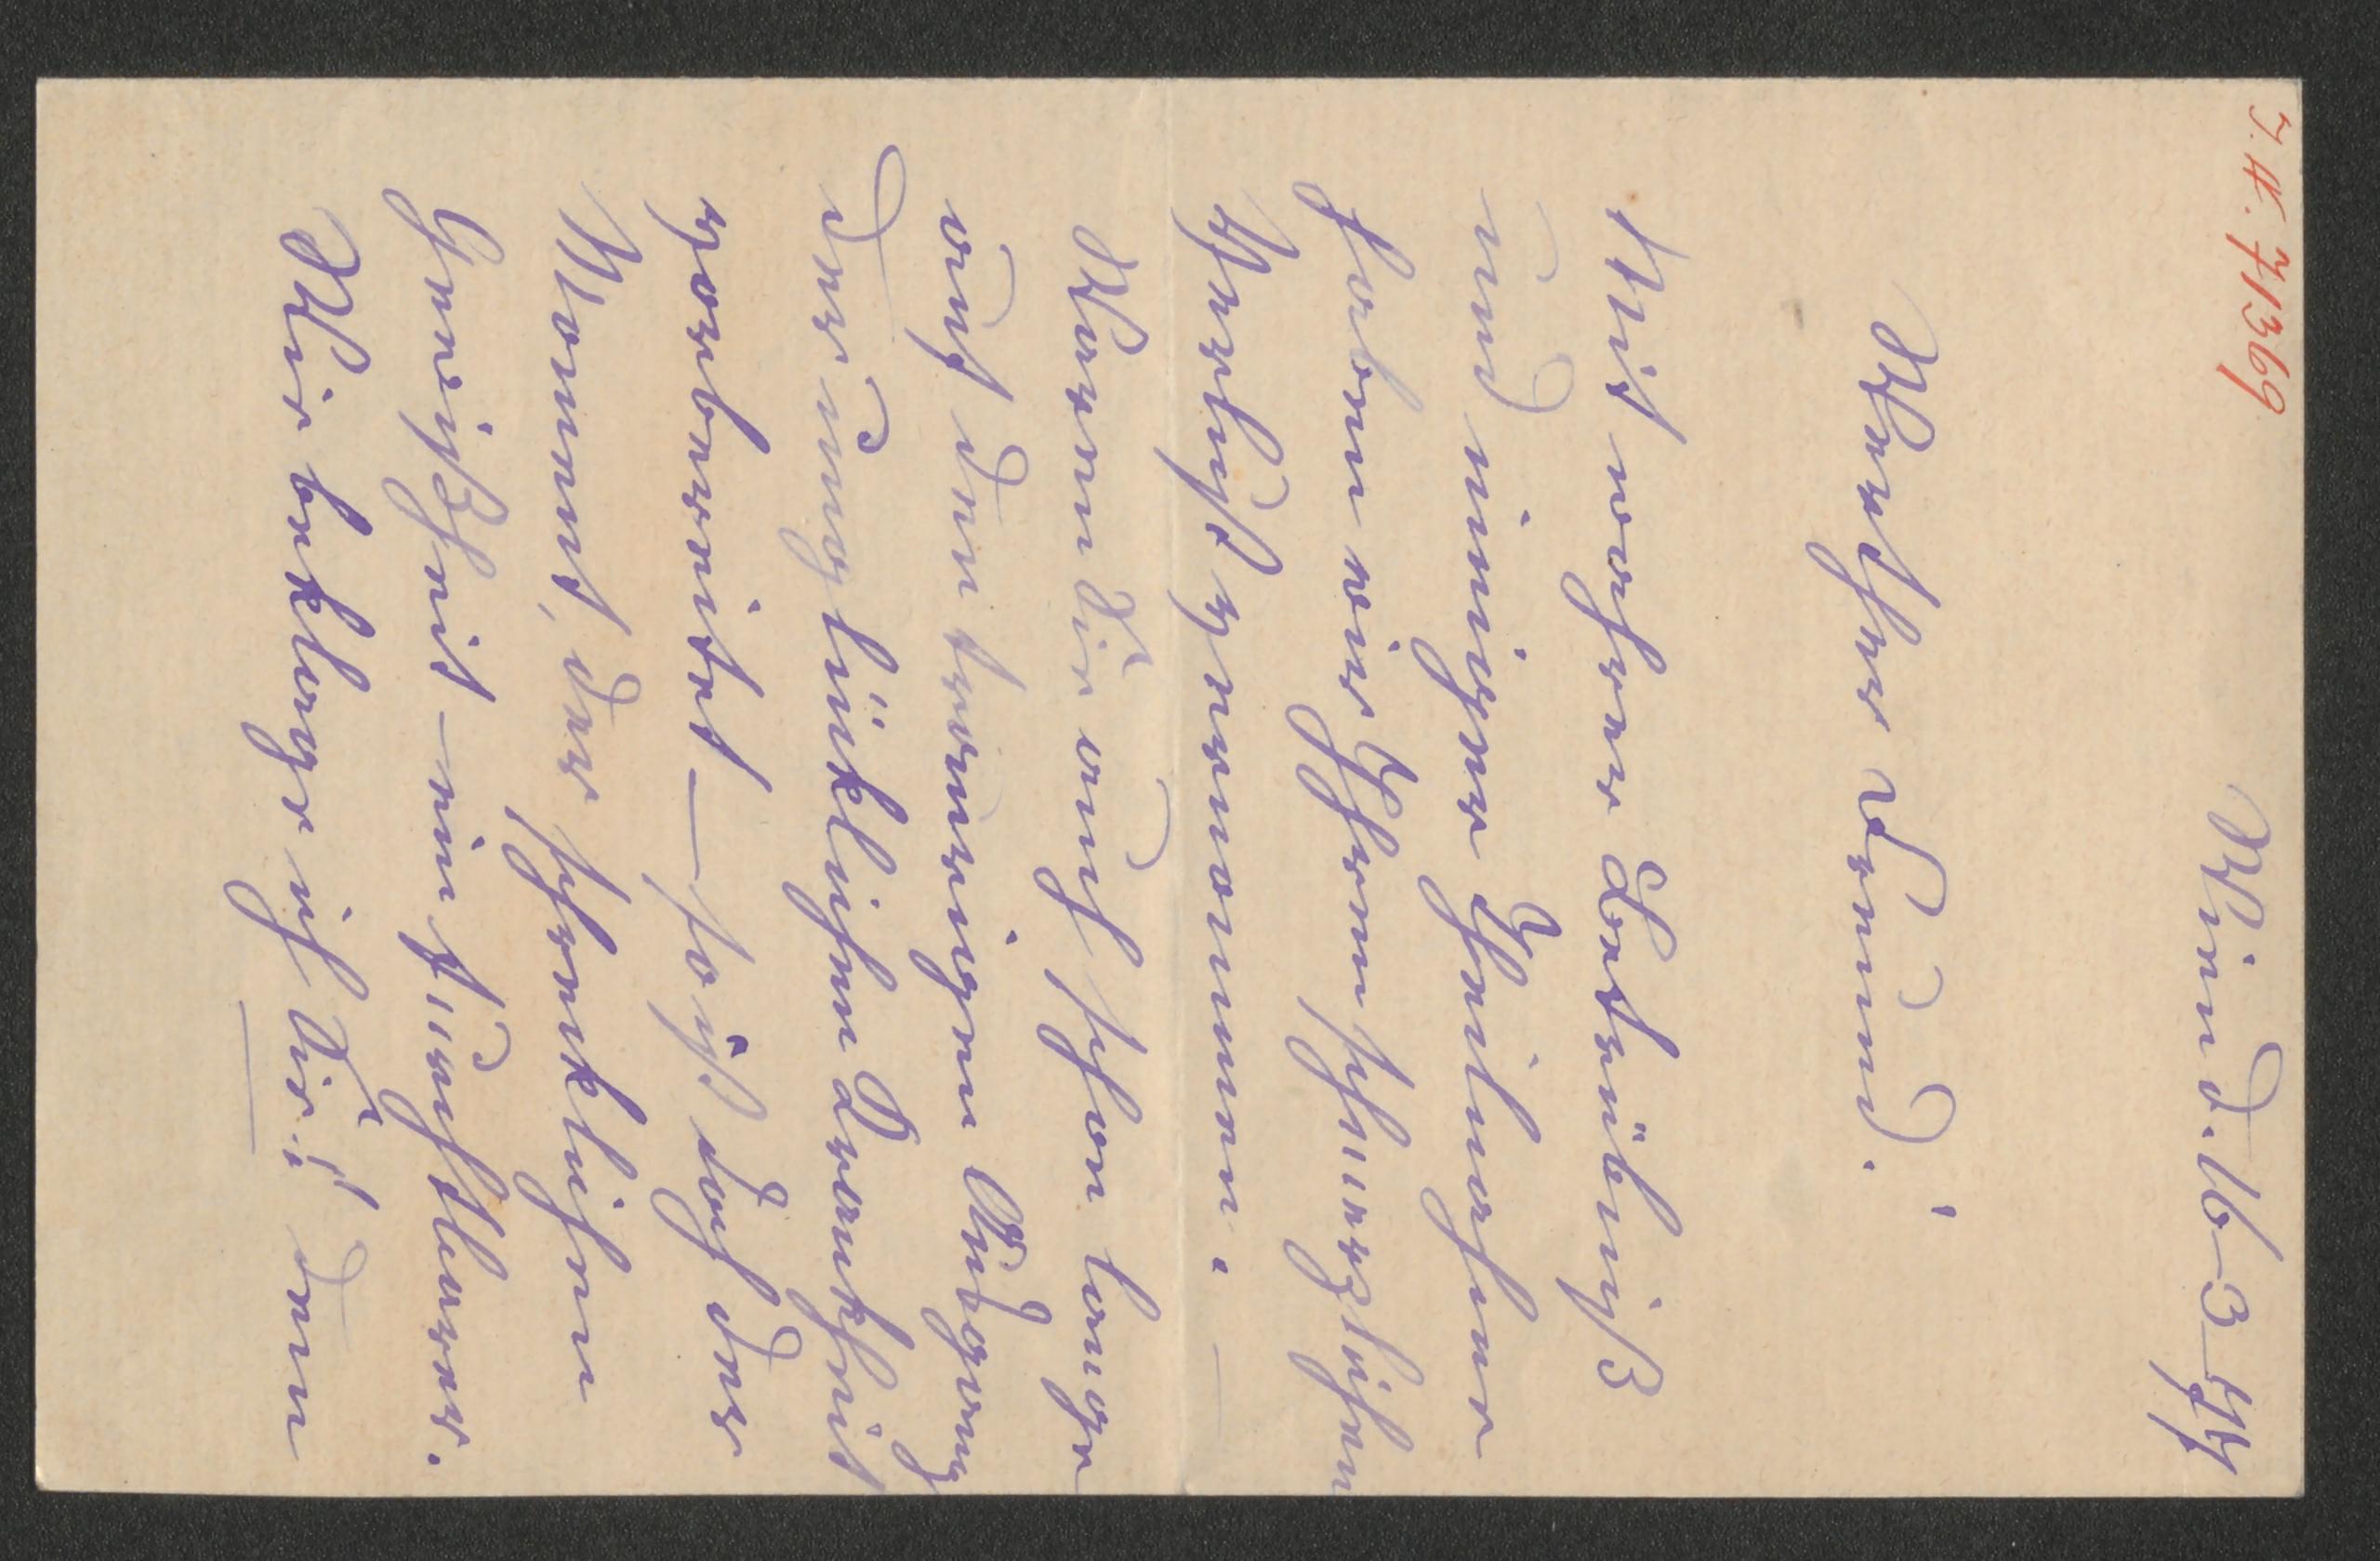 J.N. 71369
Wien d. 16–3–77
Werther Freund!
Mit wahrer Betrübniß
und inniger Theilnahme
haben wir Ihren schmerzlichen
Verlust vernommen. —
Waren Sie auch schon lange
auf den traurigen Ausgang
der unglücklichen Krankheit
vorbereitet — so ist doch der
Moment, der schrecklichen
Gewißheit — ein furchtbarer.
Wie beklage ich Sie! denn